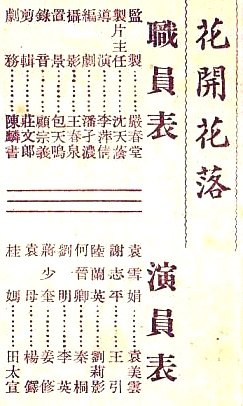 花開花落
職員表
監製……嚴春堂
製片主任……沈天蔭
導演……李萍倩
編劇……潘孑農
攝影……王春泉
置景……包天鳴
錄音……顧宗義
剪輯……莊文郎
劇務……陳麟書
演員表
袁雪娟……袁美雲
謝志平……王引
陸蘭英……劉莉影
何管卿……秦桐
劉明……李英
蔣少奎……姜修
袁母……楊鐸
桂媽……田太宣